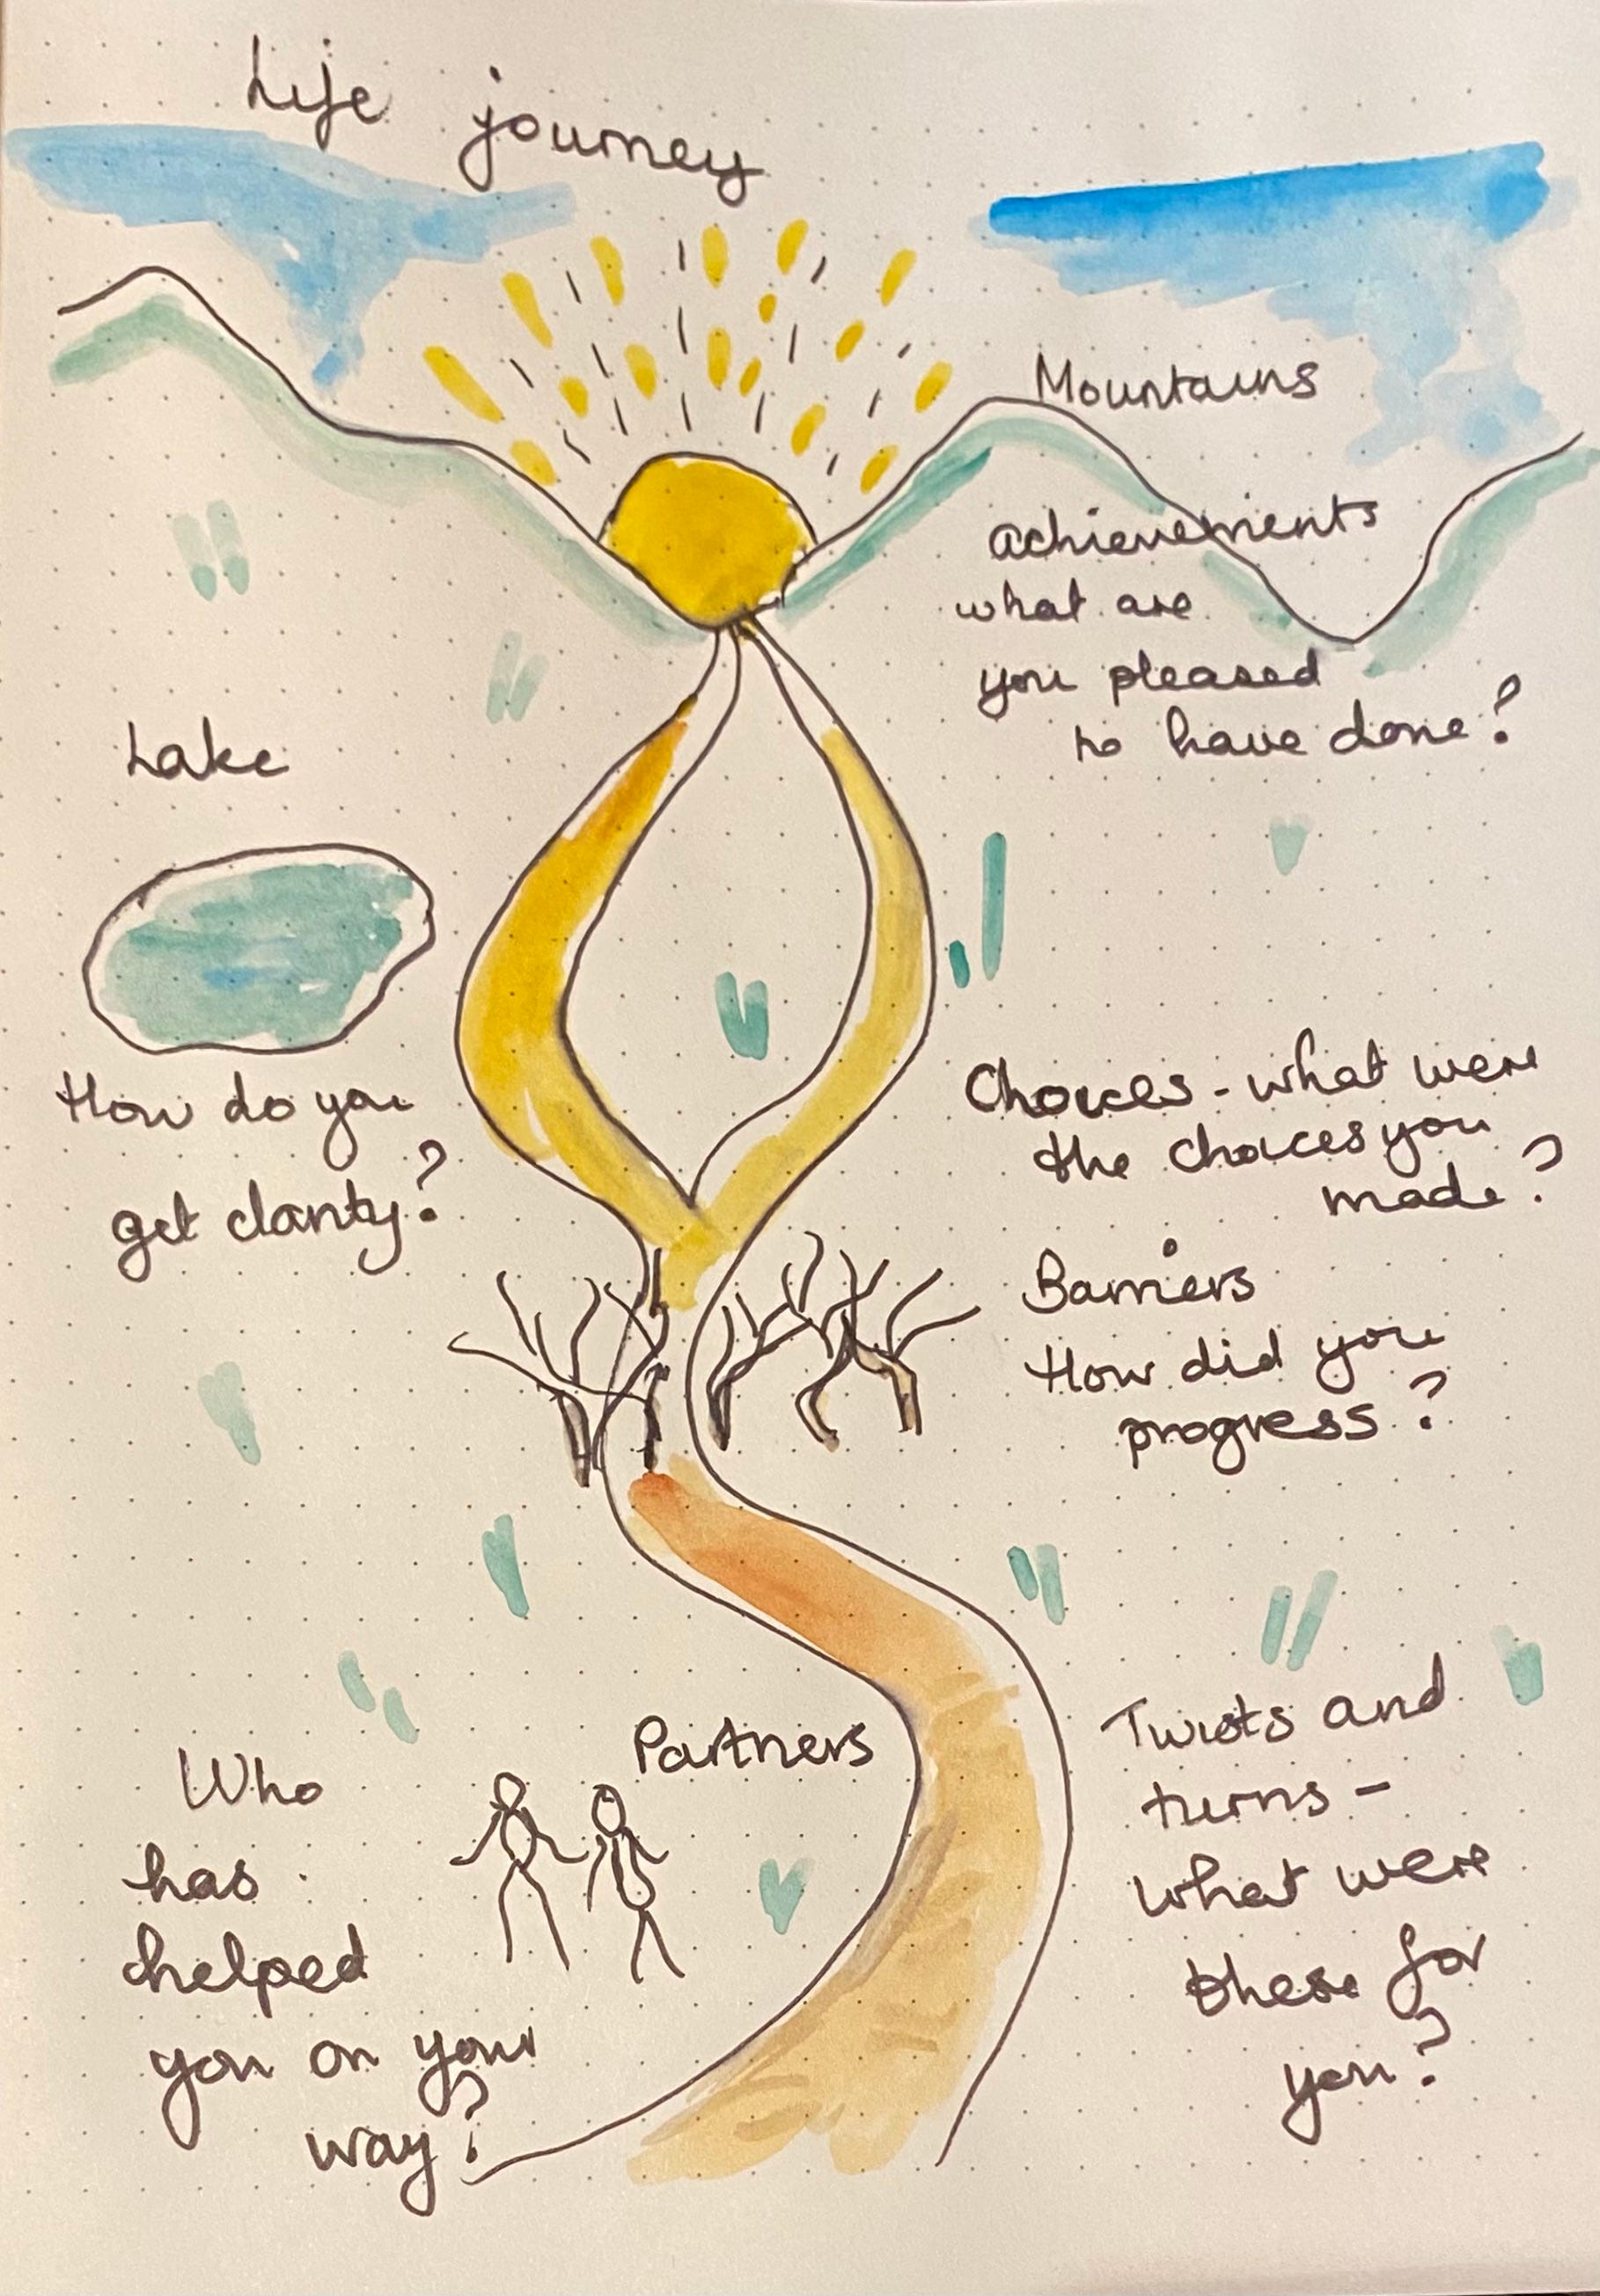 Life journey
Mountains
achievements
what are
you pleased
to have done?
Lake
How do you
get clarity?
Choices - what were
the choices you
made?
Barriers
How did you
progress?
Partners
Who
has
helped
you on your
way?
Twists and
turns -
what were
these for
you?